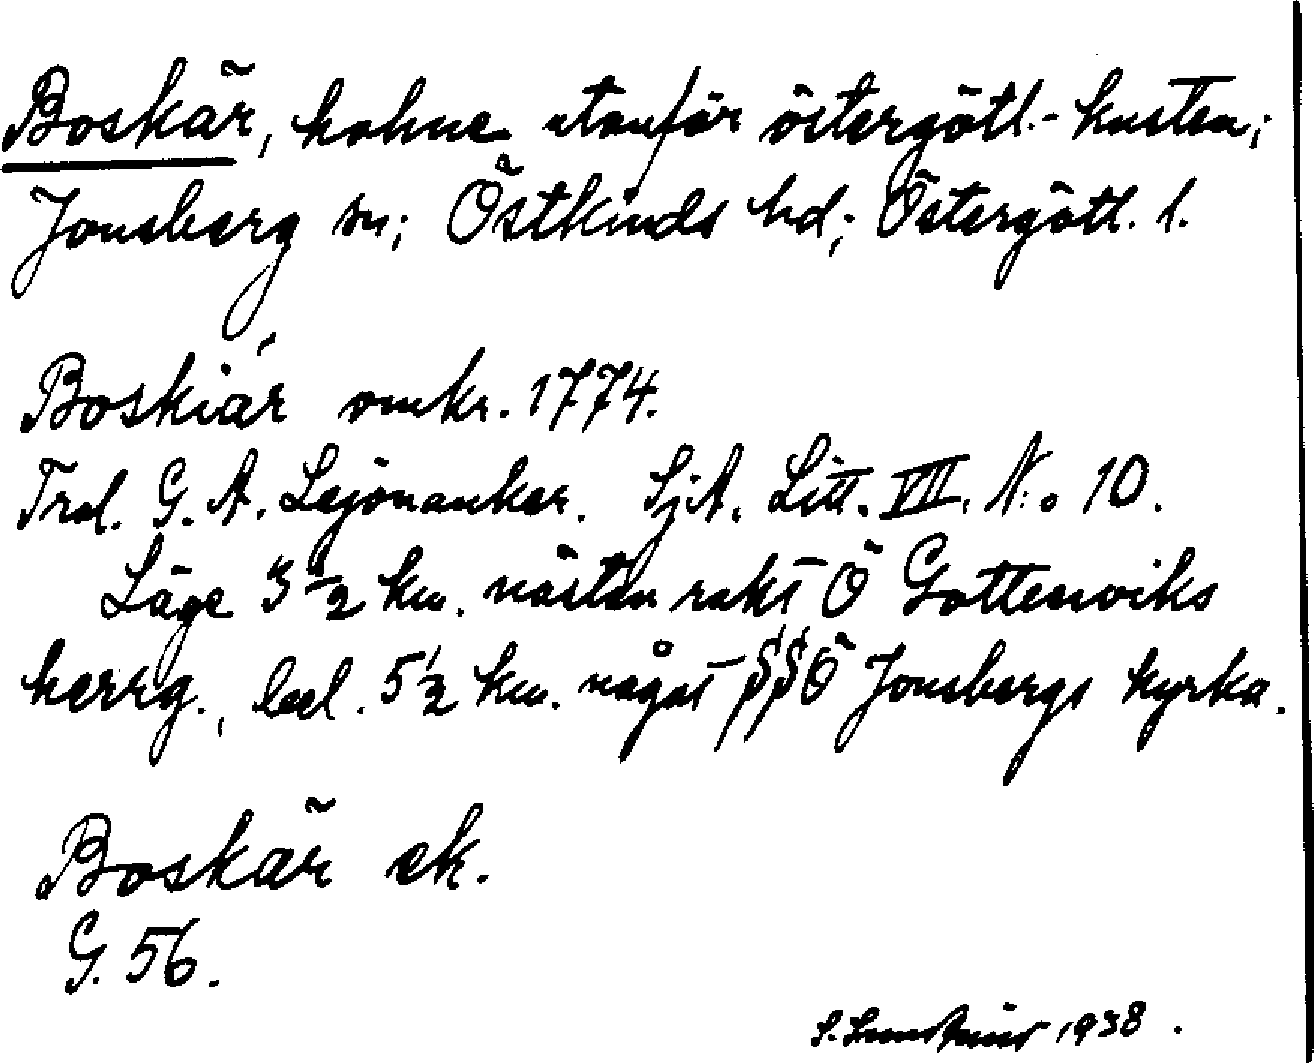 Boskär, holme utanför östergötl.-kusten;
Jonsberg sn; Östkinds hd; Östergötl. l.
Boskiär omkr. 1774.
Trol. G. A. Lejonanker. SjA. Litt. VII. N:o 10.
Läge 3 ½ km. nästan rakt Ö Gottenviks
herrg., bel. 5 ½ km. något SSÖ Jonsbergs kyrka.
Boskär ek.
G. 56.
S. 1938.